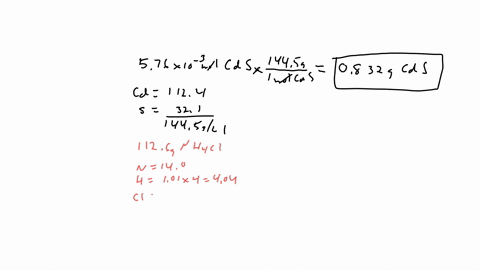 5.76 x 10⁻³ mol CdS x 144.5g / 1 mol CdS = 0.832g CdS
Cd = 112.4
S = 32.1
144.5g/
112.6g NH4Cl
N = 14.0
H = 1.01 x 4 = 4.04
Cl